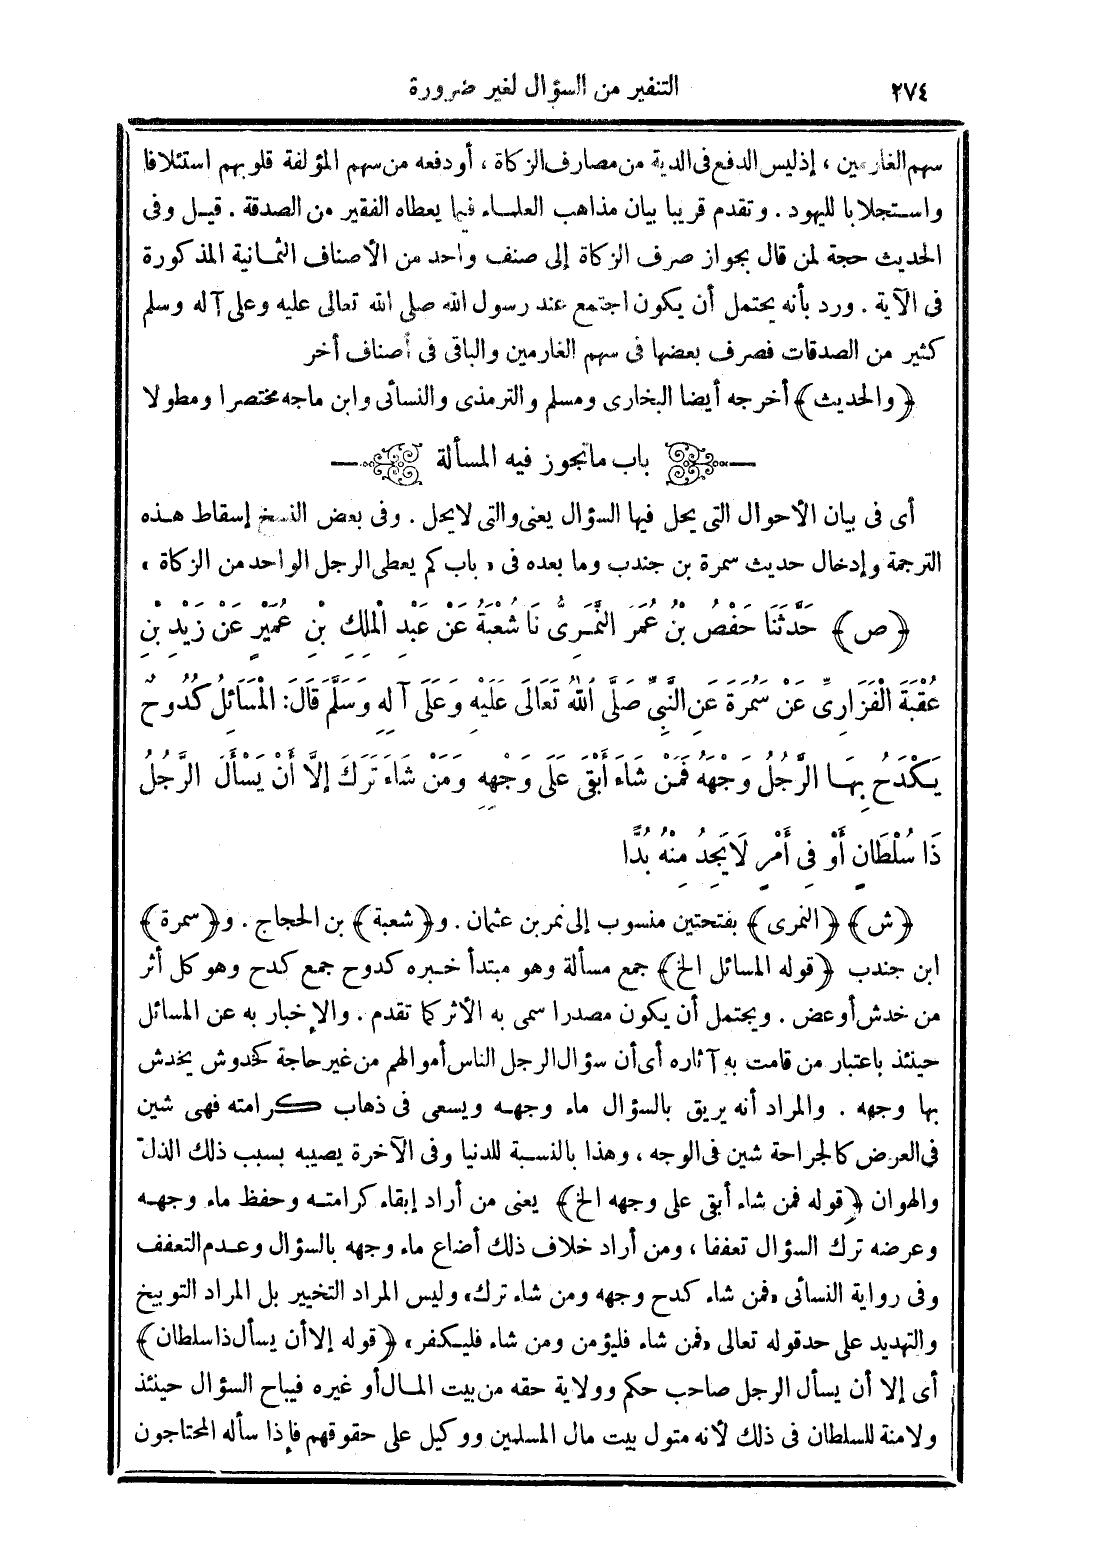 ٢٧٤ التنفير من السؤال لغير ضرورة
سهم الغارمين ، إذ ليس الدفع فى الدية من مصارف الزكاة ، أو دفعه من سهم المؤلفة قلوبهم استئلافا
واستجلابا لليهود . وتقدم قريبا بيان مذاهب العلماء فيما يعطاه الفقير من الصدقة . قيل وفى
الحديث حجة لمن قال بجواز صرف الزكاة إلى صنف واحد من الأصناف الثمانية المذكورة
فى الآية . ورد بأنه يحتمل أن يكون اجتمع عند رسول الله صلى الله تعالى عليه وعلى آله وسلم
كثير من الصدقات فصرف بعضها فى سهم الغارمين والباقى فى أصناف أخر
﴿والحديث﴾ أخرجه أيضا البخارى ومسلم والترمذى والنسائى وابن ماجه مختصرا ومطولا
باب ما تجوز فيه المسألة
أى فى بيان الأحوال التى يحل فيها السؤال يعنى والتى لا يحل . وفى بعض النسخ إسقاط هذه
الترجمة وإدخال حديث سمرة بن جندب وما بعده فى «باب كم يعطى الرجل الواحد من الزكاة»
﴿ص﴾ حَدَّثَنَا حَفْصُ بْنُ عُمَرَ النَّمَرِىُّ نَا شُعْبَةُ عَنْ عَبْدِ الْمَلِكِ بْنِ عُمَيْرٍ عَنْ زَيْدِ بْنِ
عُقْبَةَ الْفَزَارِىِّ عَنْ سَمُرَةَ عَنِ النَّبِىِّ صَلَّى اللهُ تَعَالَى عَلَيْهِ وَعَلَى آلِهِ وَسَلَّمَ قَالَ: الْمَسَائِلُ كُدُوحٌ
يَكْدَحُ بِهَا الرَّجُلُ وَجْهَهُ فَمَنْ شَاءَ أَبْقَى عَلَى وَجْهِهِ وَمَنْ شَاءَ تَرَكَ إِلَّا أَنْ يَسْأَلَ الرَّجُلُ
ذَا سُلْطَانٍ أَوْ فِى أَمْرٍ لَا يَجِدُ مِنْهُ بُدًّا
﴿ش﴾ ﴿النمرى﴾ بفتحتين منسوب إلى نمر بن عثمان . و﴿شعبة﴾ بن الحجاج . و﴿سمرة﴾
ابن جندب ﴿قوله المسائل الخ﴾ جمع مسألة وهو مبتدأ خبره كدوح جمع كدح وهو كل أثر
من خدش أو عض . ويحتمل أن يكون مصدرا سمى به الأثر كما تقدم . والإخبار به عن المسائل
حينئذ باعتبار من قامت به آثاره أى أن سؤال الرجل الناس أموالهم من غير حاجة كخدوش يخدش
بها وجهه . والمراد أنه يريق بالسؤال ماء وجهه ويسعى فى ذهاب كرامته فهى شين
فى العرض كالجراحة شين فى الوجه ، وهذا بالنسبة للدنيا وفى الآخرة يصيبه بسبب ذلك الذل
والهوان ﴿قوله فمن شاء أبقى على وجهه الخ﴾ يعنى من أراد إبقاء كرامته وحفظ ماء وجهه
وعرضه ترك السؤال تعففا ، ومن أراد خلاف ذلك أضاع ماء وجهه بالسؤال وعدم التعفف
وفى رواية النسائى «فمن شاء كدح وجهه ومن شاء ترك» وليس المراد التخيير بل المراد التوبيخ
والتهديد على حد قوله تعالى «فمن شاء فليؤمن ومن شاء فليكفر» ﴿قوله إلا أن يسأل ذا سلطان﴾
أى إلا أن يسأل الرجل صاحب حكم وولاية حقه من بيت المال أو غيره فيباح السؤال حينئذ
ولا منة للسلطان فى ذلك لأنه متول بيت مال المسلمين ووكيل على حقوقهم فإذا سأله المحتاجون